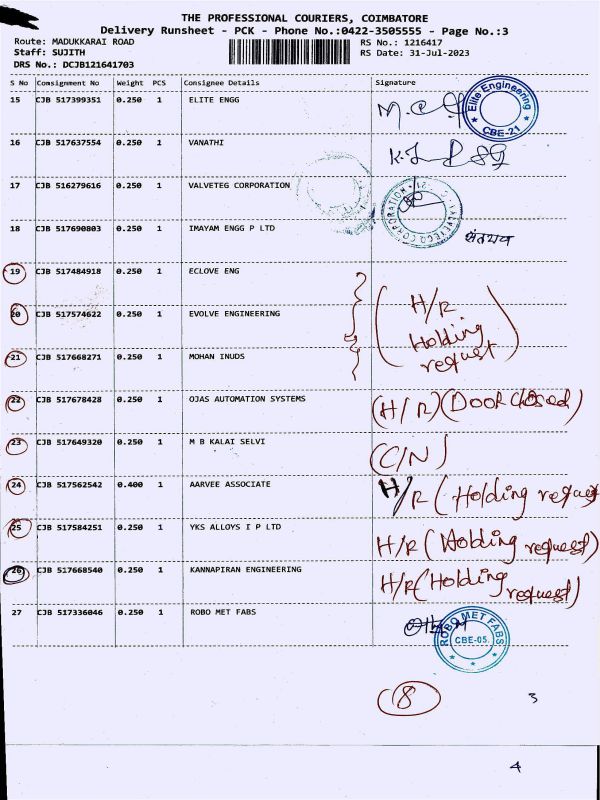 THE PROFESSIONAL COURIERS, COIMBATORE
Delivery Runsheet - PCK - Phone No.:0422-3505555 - Page No.:3
Route: MADUKKARAI ROAD RS No.: 1216417
Staff: SUJITH RS Date: 31-Jul-2023
DRS No.: DCJB121641703
S No Consignment No Weight PCS Consignee Details Signature
15 CJB 517399351 0.250 1 ELITE ENGG
Elite Engineering
CBE-21
16 CJB 517637554 0.250 1 VANATHI
17 CJB 516279616 0.250 1 VALVETEG CORPORATION
18 CJB 517690803 0.250 1 IMAYAM ENGG P LTD
19 CJB 517484918 0.250 1 ECLOVE ENG
20 CJB 517574622 0.250 1 EVOLVE ENGINEERING
21 CJB 517668271 0.250 1 MOHAN INUDS
(H/R
Holding
request)
22 CJB 517678428 0.250 1 OJAS AUTOMATION SYSTEMS (H/R) (Door closed)
23 CJB 517649320 0.250 1 M B KALAI SELVI (C/N)
24 CJB 517562542 0.400 1 AARVEE ASSOCIATE H/R (Holding request
25 CJB 517584251 0.250 1 YKS ALLOYS I P LTD H/R (Holding request)
26 CJB 517668540 0.250 1 KANNAPIRAN ENGINEERING H/R (Holding
request)
27 CJB 517336046 0.250 1 ROBO MET FABS
ROBO MET FABS
CBE-05.
8 3
4